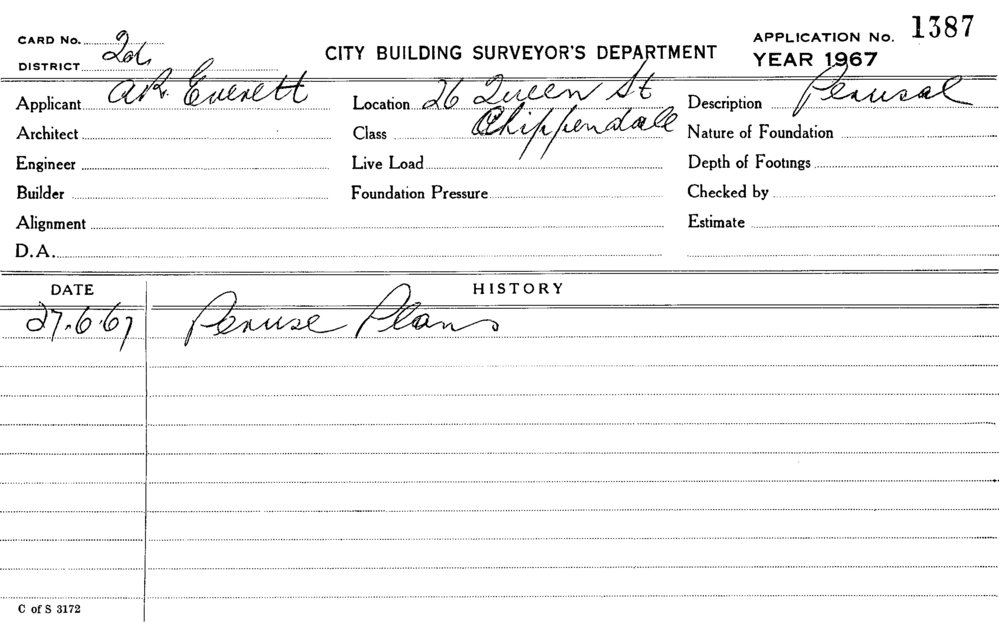 CARD No.
DISTRICT
CITY BUILDING SURVEYOR'S DEPARTMENT
APPLICATION No. 1387
YEAR 1967
Applicant A.R. Everett
Location 26 Queen St
Description Perusal
Architect
Class Chippendale
Nature of Foundation
Engineer
Live Load
Depth of Footings
Builder
Foundation Pressure
Checked by
Alignment
Estimate
D.A.
DATE
HISTORY
27.6.67 Peruse Plans
C of S 3172